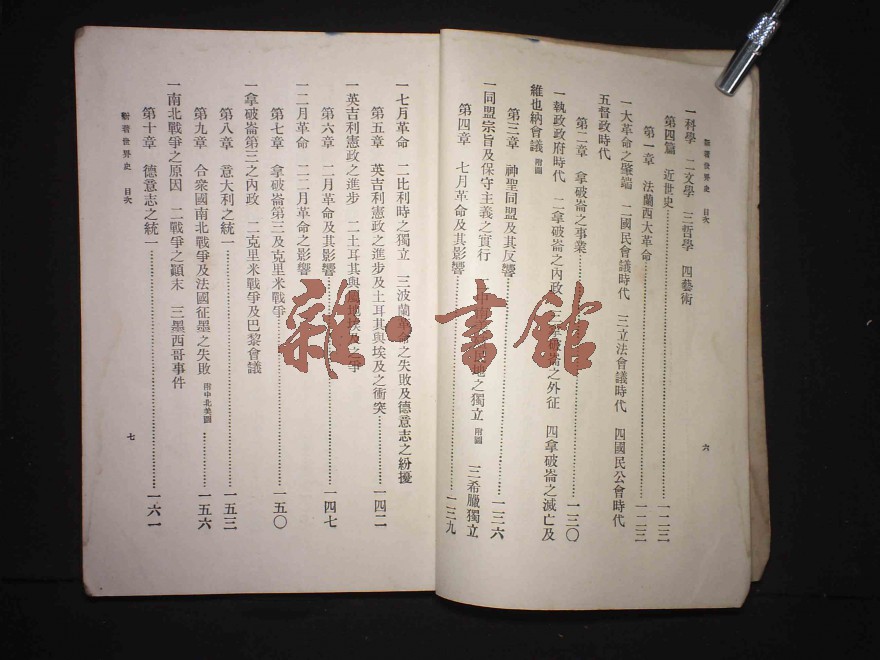 翻著世界史 目次
六
一科學 二文學 三哲學 四藝術
第四篇 近世史……一二三
第一章 法蘭西大革命……一二三
一大革命之肇端 二國民會議時代 三立法會議時代 四國民公會時代
五督政時代
第二章 拿破崙之事業……一三〇
一執政政府時代 二拿破崙之內政 三拿破崙之外征 四拿破崙之滅亡及
維也納會議 附圖
第三章 神聖同盟及其反響……一三六
一同盟宗旨及保守主義之實行 之獨立 附圖 三希臘獨立
第四章 七月革命及其影響……一三九
一七月革命 二比利時之獨立 三波蘭革命之失敗及德意志之紛擾
第五章 英吉利憲政之進步及土耳其與埃及之衝突……一四二
一英吉利憲政之進步 二土耳其與 埃及之爭
第六章 二月革命及其影響……一四七
一二月革命 二二月革命之影響
第七章 拿破崙第三及克里米戰爭……一五〇
一拿破崙第三之內政 二克里米戰爭及巴黎會議
第八章 意大利之統一……一五三
第九章 合衆國南北戰爭及法國征墨之失敗 附中北美圖……一五六
一南北戰爭之原因 二戰爭之顚末 三墨西哥事件
第十章 德意志之統一……一六一
世界史 目次
七
雜·書館